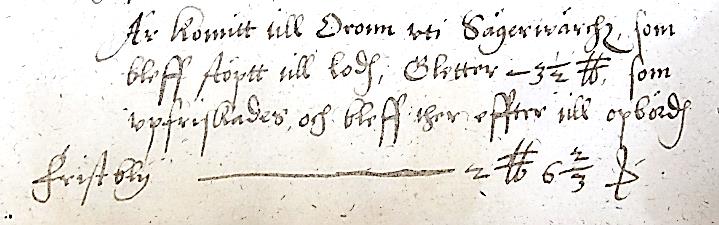 Är komitt till Oronn uti Sägerwärch, som
bleff stöptt till lodh, Gletter – 3½ ℔, som
upfriskades, och bleff ther effter till opbördh
Frist bly — 2 ℔ 6 2/3